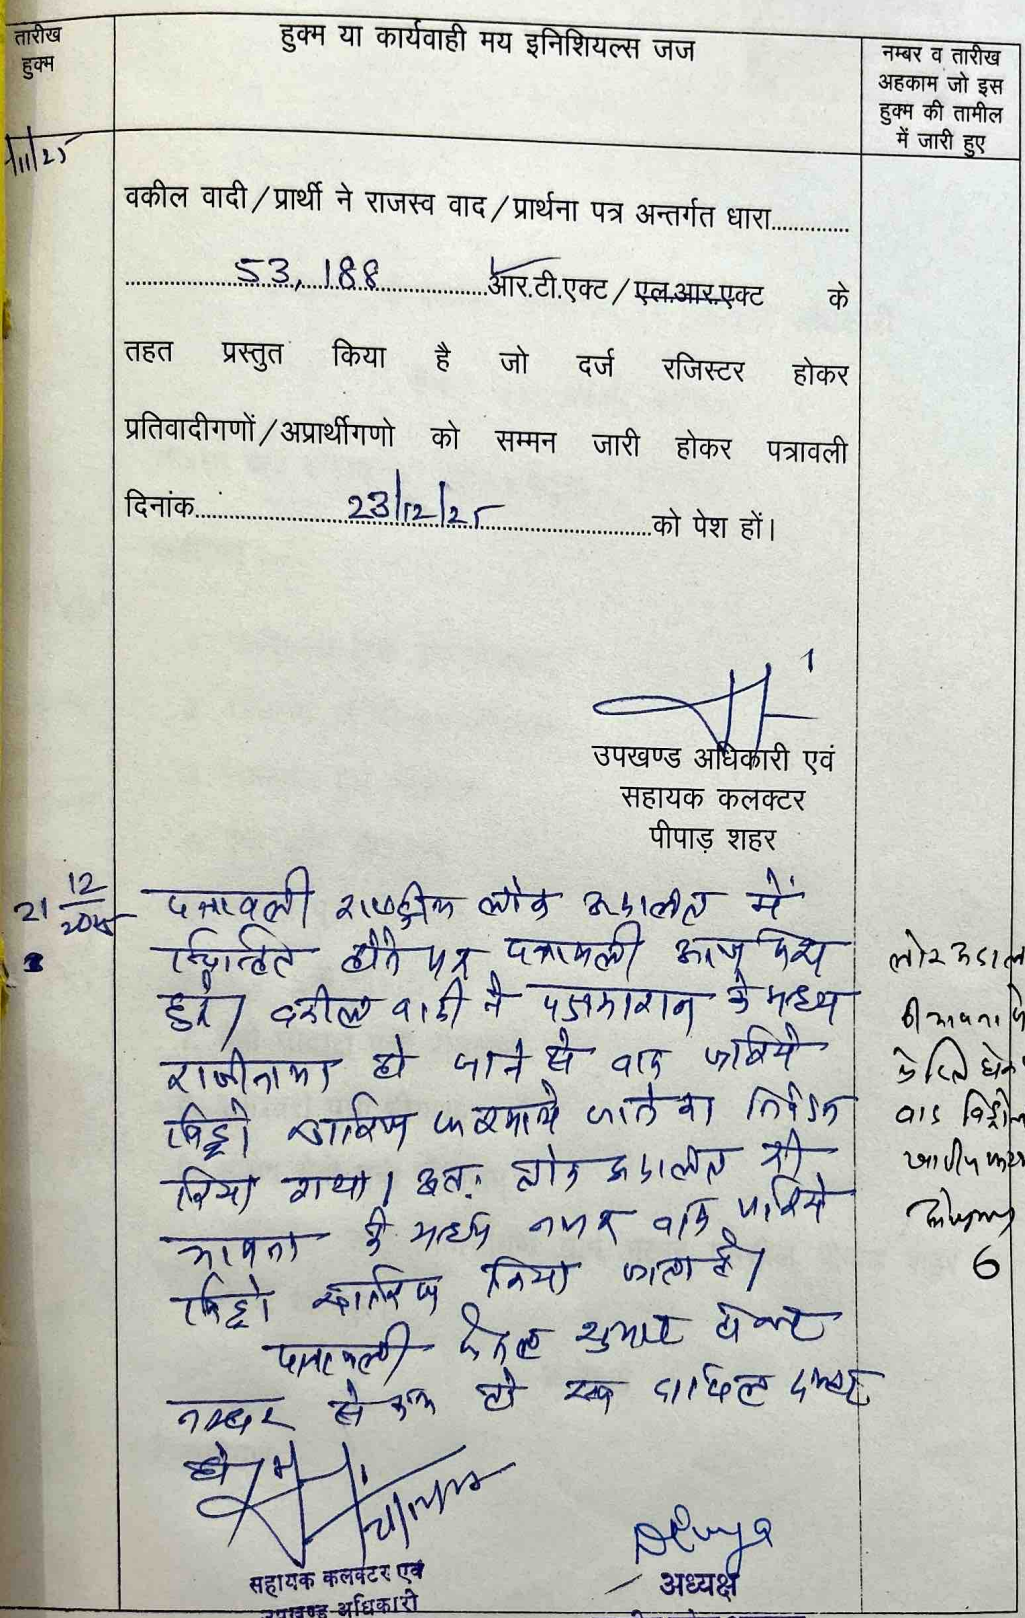 तारीख
हुक्म
हुक्म या कार्यवाही मय इनिशियल्स जज
नम्बर व तारीख
अहकाम जो इस
हुक्म की तामील
में जारी हुए
/11/25
वकील वादी/प्रार्थी ने राजस्व वाद/प्रार्थना पत्र अन्तर्गत धारा..............
53, 188 आर.टी.एक्ट/एल.आर.एक्ट के
तहत प्रस्तुत किया है जो दर्ज रजिस्टर होकर
प्रतिवादीगणों/अप्रार्थीगणो को सम्मन जारी होकर पत्रावली
दिनांक 23/12/25 को पेश हों।
उपखण्ड अधिकारी एवं
सहायक कलक्टर
पीपाड़ शहर
21 12/2025
पत्रावली राष्ट्रीय लोक अदालत में
होने पर पत्रावली आज पेश
हुई। वकील वादी ने पक्षकारान के मध्य
राजीनामा हो जाने से वाद जरिये
विड्रो खारिज फरमाये जाने का निवेदन
किया गया। अतः लोक अदालत की
भावना के मध्य नजर वाद जरिये
विड्रो खारिज किया जाता है।
पत्रावली फैसल शुमार होकर
नम्बर से कम हो दाखिल दफ्तर
हो
लोक अदालत
की भावना
वाद विड्रो
6
सहायक कलक्टर एवं
उपखण्ड अधिकारी
अध्यक्ष